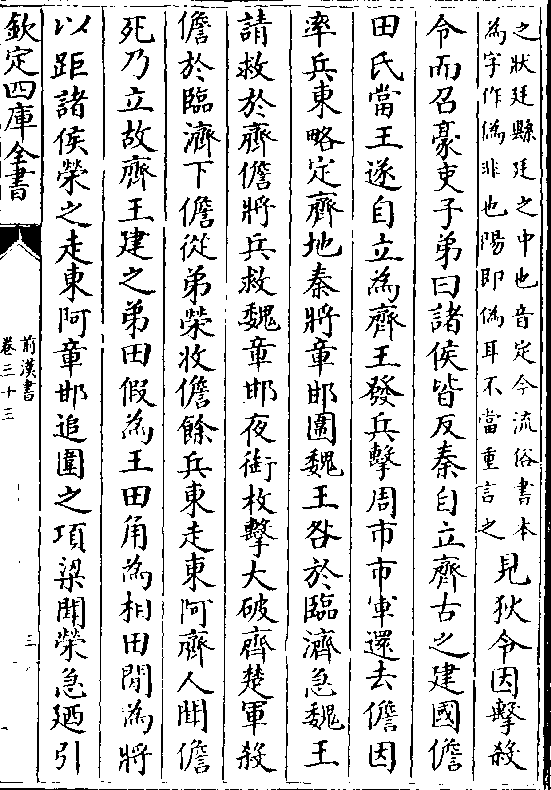 之狀廷縣廷之中也音定今流俗書本
為字作僞非也陽即僞耳不當重言之
見狄令因擊殺
令而召豪吏子弟曰諸侯皆反秦自立齊古之建國儋
田氏當王遂自立為齊王發兵擊周市市軍還去儋因
率兵東略定齊地秦將章邯圍魏王咎於臨濟急魏王
請救於齊儋將兵救魏章邯夜銜枚擊大破齊楚軍殺
儋於臨濟下儋從弟榮收儋餘兵東走東阿齊人聞儋
死乃立故齊王建之弟田假為王田角為相田閒為將
以距諸侯榮之走東阿章邯追圍之項梁聞榮急廼引
欽定四庫全書
前漢書
卷三十三
三